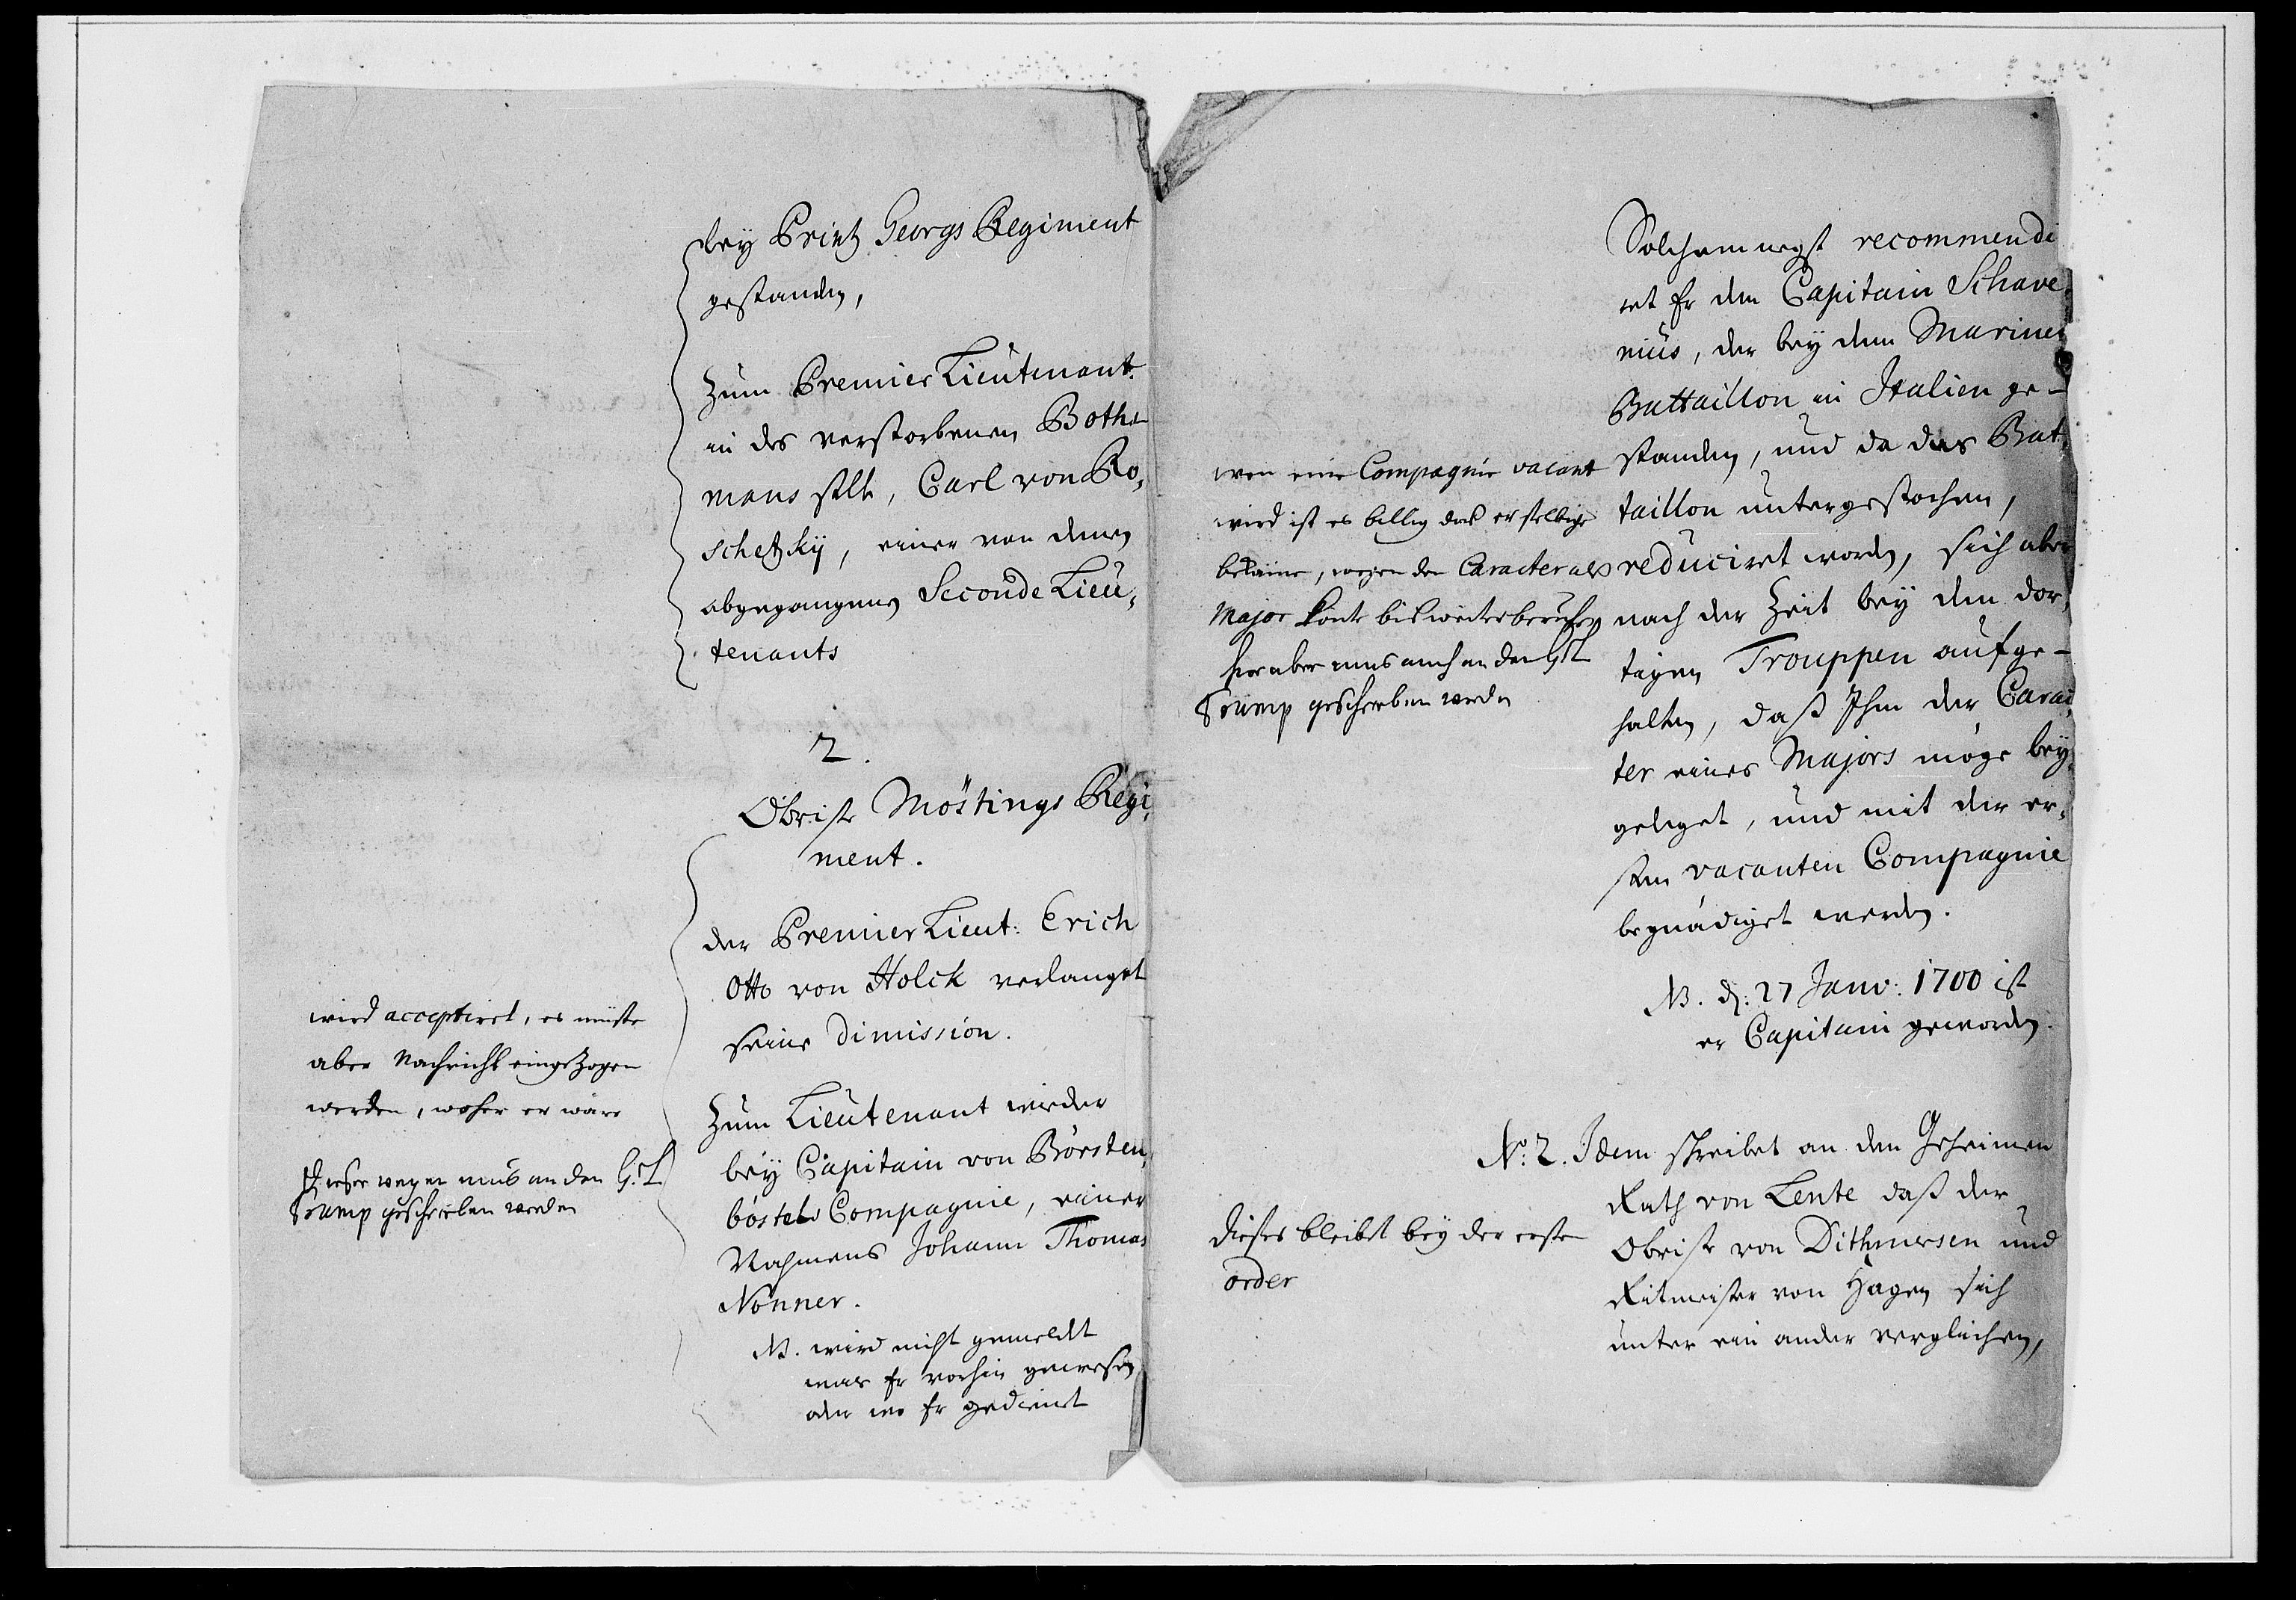 bey Printz Georgs Regiment
gestanden,
Zum Premier Lieutenant
in des verstorbenen Both-
mans stelle, Carl von Ro,
schetzky, einer von denen
abgegangenen Seconde Lieu,
tenants
2.
Obrist Möstings Regi,
ment.
der Premier Lieut: Erich
Otto von Holck verlanget
seine Dimission.
Zum Lieutenant wieder
bey Capitain von Börsten,
böstels Compagnie, einer
Nahmens Johann Thomas
Nönner.
NB. wird nicht gemeldt
was Er vorhin gewesen
oder wo Er gedienet
wird acceptiret, es müste
aber Nachricht eingezogen
werden, woher er wäre
dieser wegen mus an den G: L
Tramp geschrieben werden
Solchemnegst recommendi
ret Er den Capitain Schave,
nius, der bey dem Marine
Battaillon in Italien ge-
standen, und da das Bat,
taillon untergestochen,
reduciret worden, sich aber
nach der Zeit bey den dor,
tigen Trouppen aufge-
halten, daß Ihm der Carac,
ter eines Majors möge bey
geleget, und mit der er,
sten vacanten Compagnie
begnädiget werden.
NB. d: 27 Janv: 1700 ist
er Capitain geworden.
wen eine Compagnie vacant
wird ist es billig das er selbige
bekäme, wegen den Caracter als
Major könte bis weiter beruhen
hier aber mus auch an den G: L
Tramp geschrieben werden
No: 2. Idem schreibet an den Geheimen
Rath von Lente daß der
Obrist von Dithmersen und
Ritmeister von Hagen sich
unter ein ander verglichen,
dieses bleibet bey der erste
order